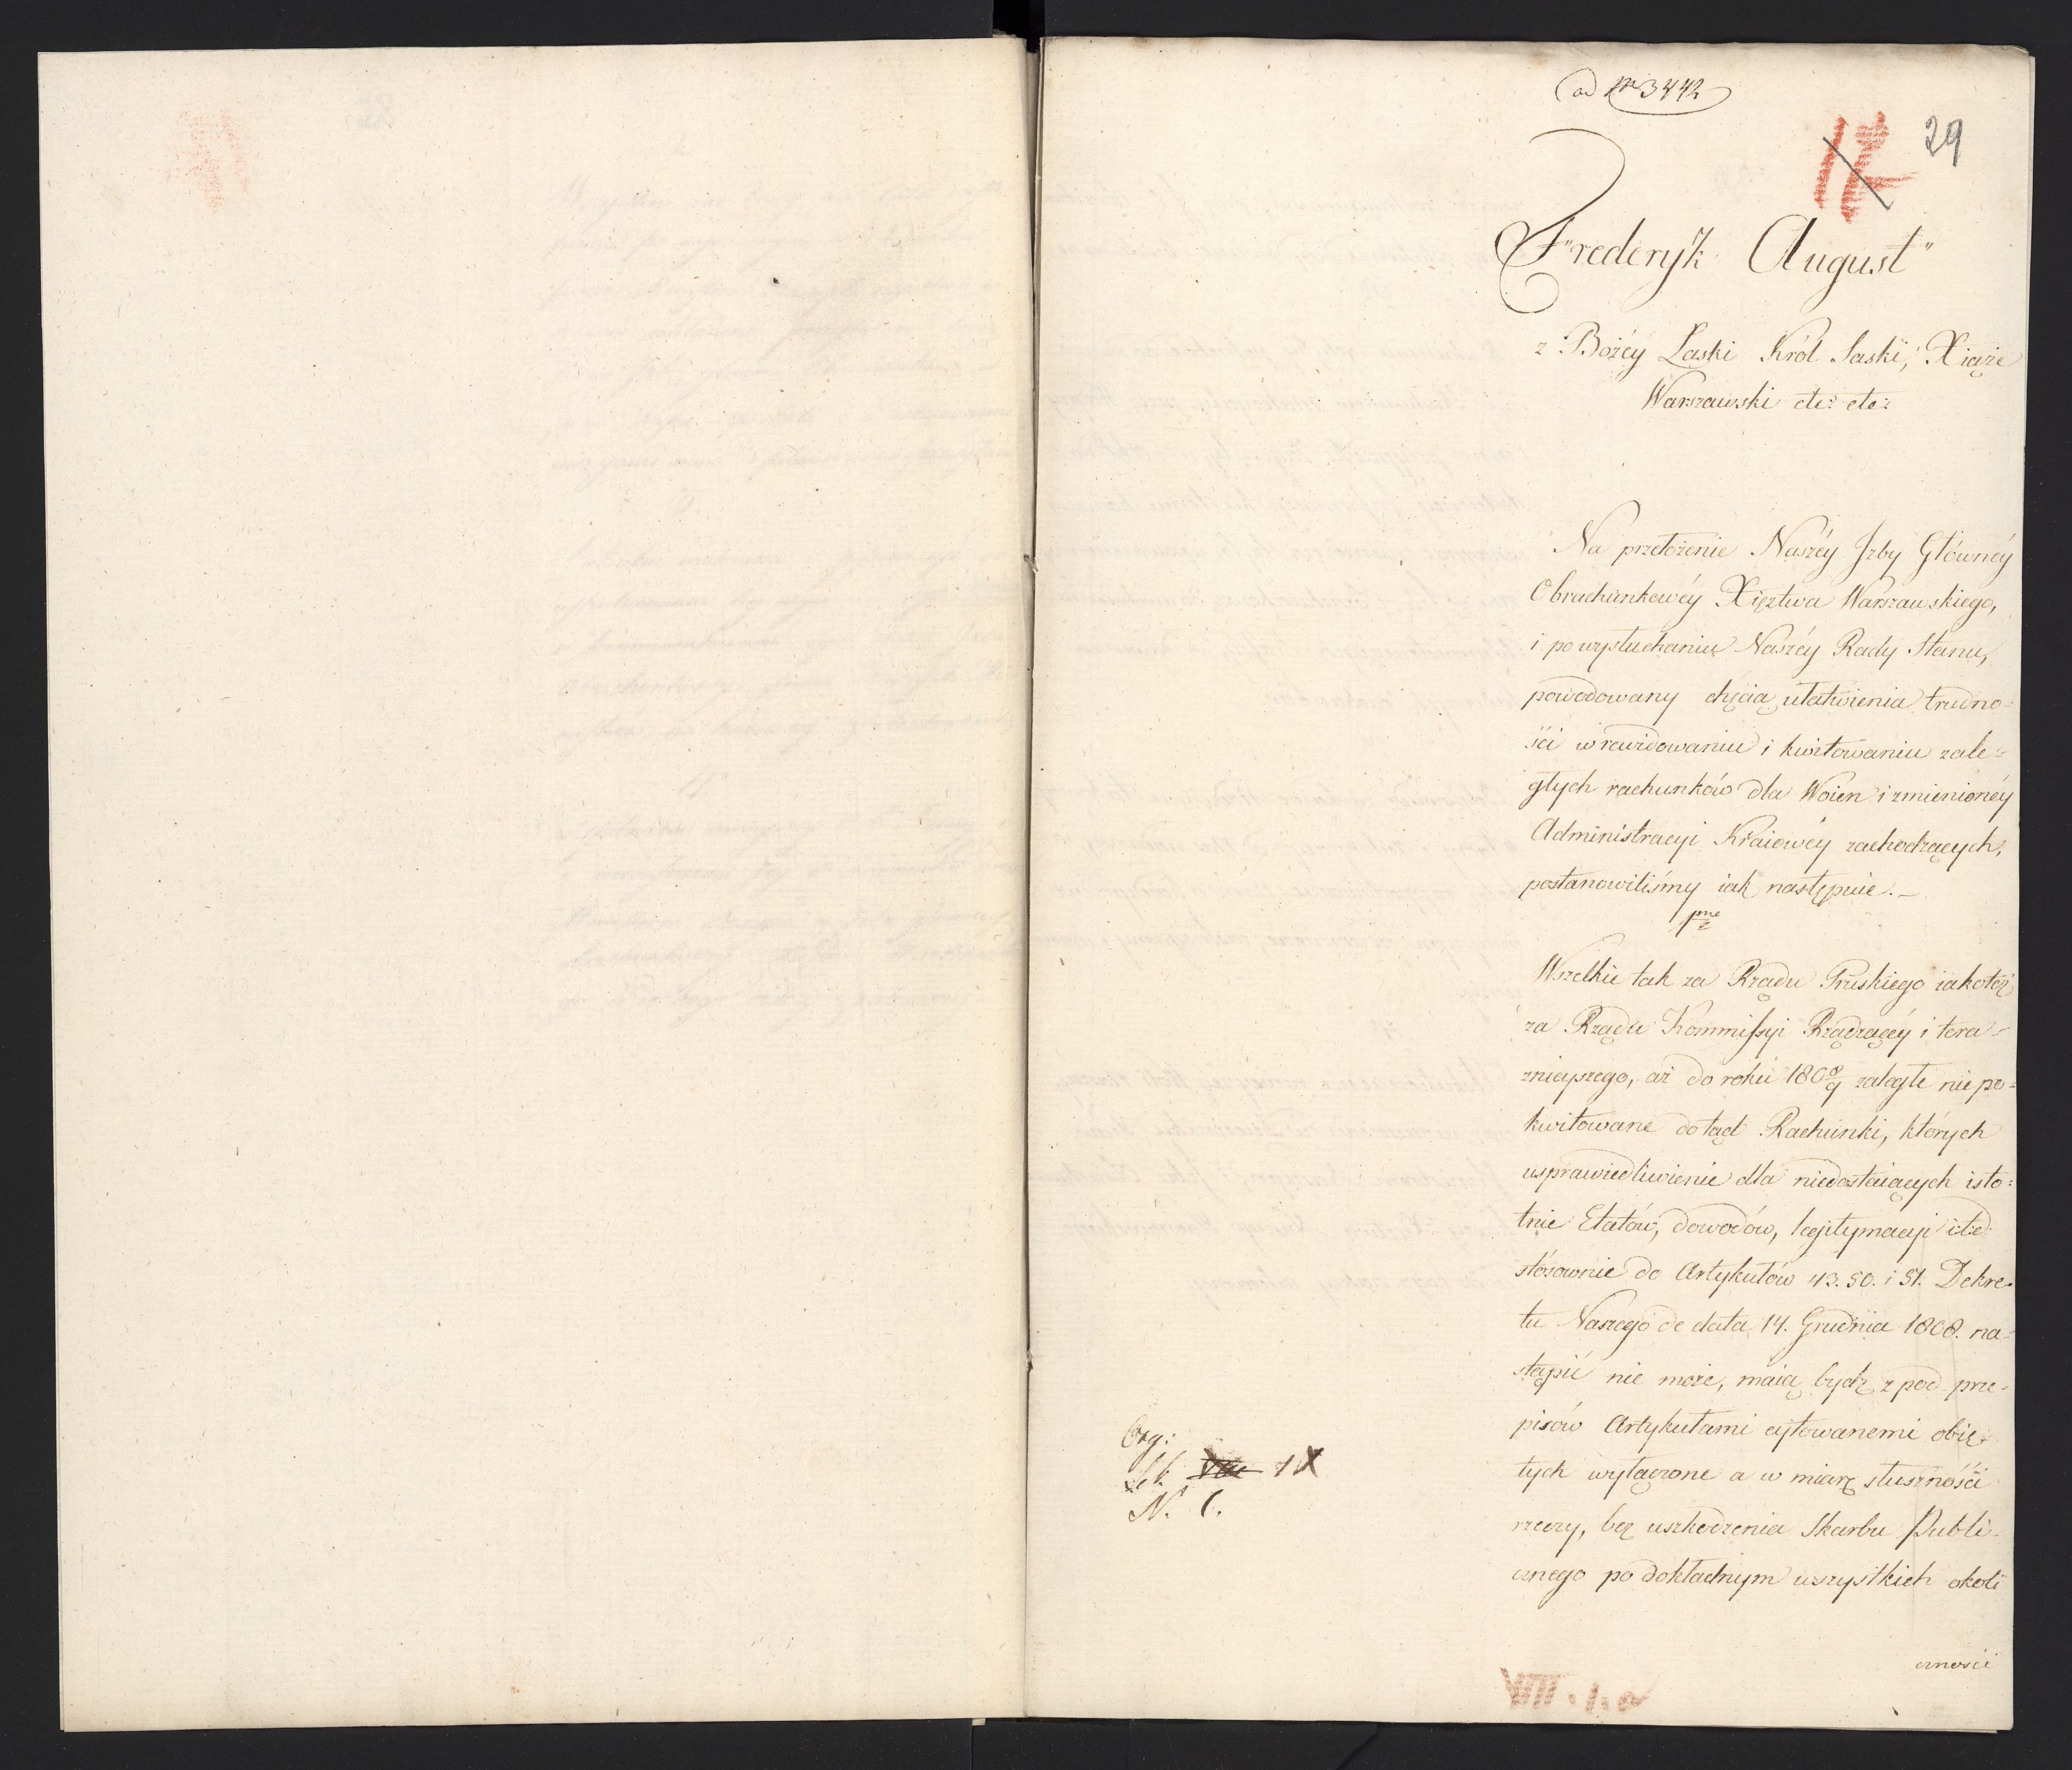 ad Nro 3442
17 29
Frederyk August
z Bożéy Łaski Król Saski, Xiąże
Warszawski etc: etc:
Na przełożenie Naszéy Izby Głównéy
Obrachunkowéy Xięztwa Warszawskiego,
i po wysłuchaniu Naszéy Rady Stanu,
powodowany chęcią ułatwienia trudno=
ści w rewidowaniu i kwitowaniu zale=
głych rachunków dla Woien i zmienionéy
Administracyi Kraiowéy zachodzących,
postanowiliśmy iak następuie. –
1mo
Wszelkie tak za Rządu Pruskiego iakoteż
za Rządu Kommissyi Rządzącéy i tera=
znieyszego, aż do roku 1808/9 zaległe nie po=
kwitowane dotąd Rachunki, których
usprawiedliwienie dla niedostaiących isto=
tnie Etatów, dowodów, legitymacyi itd
stósownie do Artykułów 43. 50. i 51. Dekre=
tu Naszego de data 14. Grudnia 1808. na=
stąpić nie może, maią bydź z pod prze=
pisów Artykułami cytowanemi obię=
tych wyłączone a w miarę słuszności
rzeczy, bez uszkodzenia Skarbu Publi=
cznego po dokładnym wszystkich okoli
czności
Org:
Lit. VIII IX
N. 1.
VIII